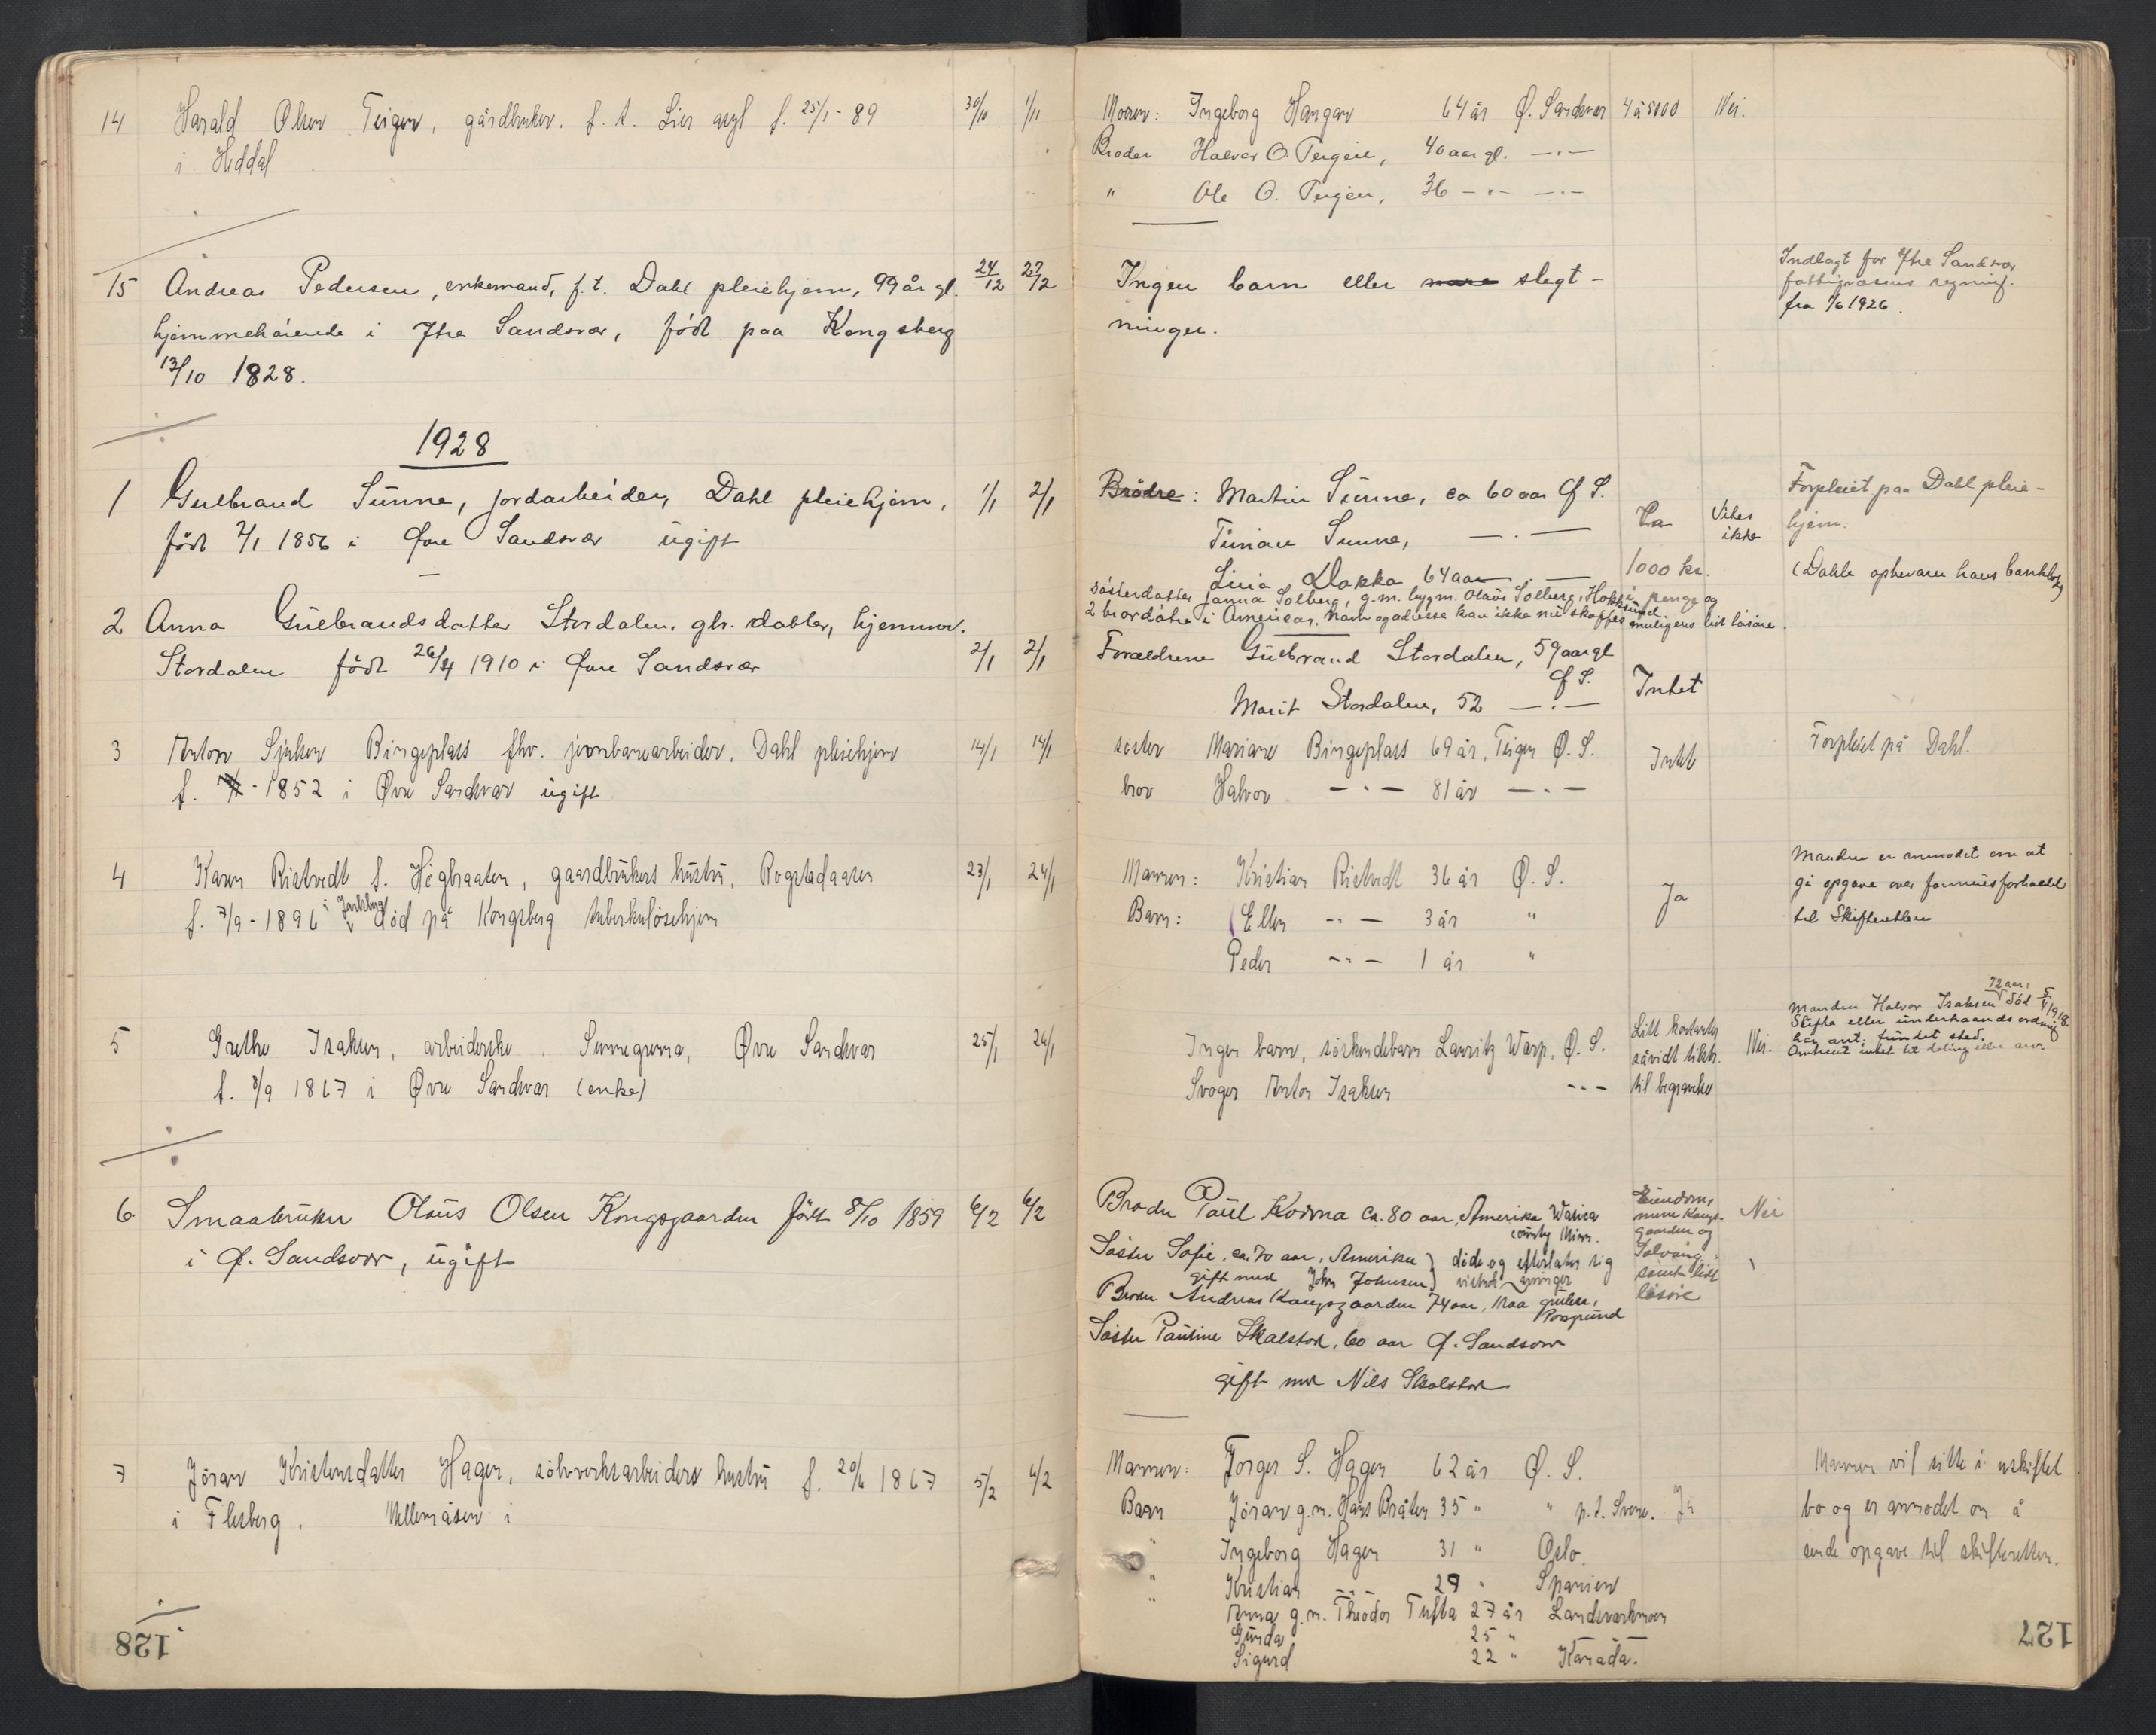 14 Harald Olsen Teigen, gårdbruker. f. t. Lier asyl f. 25/1-89 30/10 1/11
i Heddal
15 Andreas Pedersen, enkemand, f. t. Dahl pleiehjem, 99 år gl. 24/12 27/12
hjemmehörende i Ytre Sandsvær, född paa Kongsberg
13/10 1828.
1928
1 Gulbrand Sunne, jordarbeider, Dahl pleiehjem. 1/1 2/1
född 7/1 1856 i Øvre Sandsvær ugift
2 Anna Gulbrandsdatter Stordalen. gbr. datter, hjemmev. 2/1 2/1
Stordalen född 26/4 1910 i Øvre Sandsvær
3 Anton Bingeplass fhv. jernbanearbeider. Dahl pleiehjem 14/1 14/1
f. 1852 i Øvre Sandsvær ugift
4 Karen Ristvedt f. Högbraaten, gaardbrukers hustru, Rogstadaasen 23/1 24/1
f. 7/9-1896 i död på Kongsberg tuberkulösehjem
5 Grethe Isaksen, arbeiderske Sunnegrenna, Øvre Sandsvær 25/1 26/1
f. 8/9 1867 i Øvre Sandsvær (enke)
6 Smaabruker Olaus Olsen Kongsgaarden född 8/10 1859 6/2 6/2
i Ø. Sandsvær, ugift
7 Jöran Kristensdatter Hagen, sölvverksarbeiders hustru f. 20/6 1867 5/2 6/2
i Flesberg.
128
Moren: Ingeborg Hengen 64 år Ø. Sandsvær 4 à 5000 Nei.
Broder Halvor O. Teigen, 40 aar gl. — " —
" Ole O. Teigen, 36 — " — — " —
Ingen barn eller slegt-
ninger.
Indlagt for Ytre Sandsvær
fattigvæsens regning.
fra 1/6 1926.
Brödre: Martin Sunne, ca 60 aar Ø S.
Sunne, — " —
Lina Dokka 64 aar — " —
Ca
1000 kr.
i penge og
muligens lidt lösöre.
Vites
ikke
Forpleiet paa Dahl pleie-
hjem.
(Dahle opbevarer hans bankbok)
Sösterdatter Janna Solberg, g. m. bygm. Olaus Solberg, Hokksund,
2 brordötre i Amerika. Navn og adresse kan ikke nu skaffes.
Forældrene Gulbrand Stordalen, 59 aar gl Ø S.
Marit Stordalen, 52 — " — Intet
söster Mariane Bingeplass 69 år, Teigen Ø. S. Intet Forpleiet på Dahl.
bror Halvor — " — 81 år — " —
Mannen: Kristian Ristvedt 36 år Ø. S. Ja
Barn: Ellen — " — 3 år "
Peder — " — 1 år "
Manden er anmodet om at
gi opgave over formuesforhold
til Skifteretten
Ingen barn, söskendebarn Lauritz Warp, Ø. S.
Svoger Anton Isaksen — " —
Litt kontanter
såvidt tilstr.
til begravelse
Nei.
Manden Halvor Isaksen, 72 aar, död 5/5 1918.
Skifte eller underhaandsordning
har ant. fundet sted.
Antent intet til deling eller arv.
Broder Paul Korma ca. 80 aar, Amerika
county Minn.
Söster Sofie, ca. 70 aar, Amerika } döde og efterlater sig
gift med John Johnsen } livsarvinger
Broder Andreas Kongsgaarden 74 aar,
Porsgrund
Söster Pauline Skalstad, 60 aar Ø. Sandsvær
gift med Nils Skalstad
Eiendom,
Kongs-
gaarden og
Solvang,
samt lidt
lösöre
Nei
Mannen: Torger S. Hagen 62 år Ø. S.
Barn Jöran g. m. Hans Bråten 35 " " p. t. Svene. Ja
" Ingeborg Hagen 31 " Oslo.
" Kristian — " — 29 " Spanien
" Anna g. m. Theodor Tufta 27 år Landsverkmoen
Gunda 25 "
Sigurd 22 " Kanada.
Mannen vil sitte i uskiftet
bo og er anmodet om å
sende opgave til skifteretten.
127